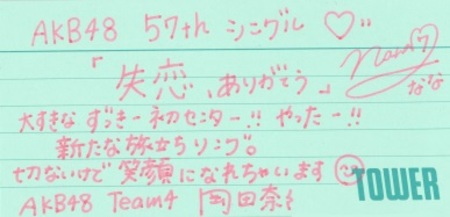 AKB48 57th シングル ♡
「失恋、ありがとう」
なな
大すきな ずっきー初センター!! やったー!!
新たな旅立ちソング。
切ないけど笑顔になれちゃいます
TOWER
AKB48 Team4 岡田奈々